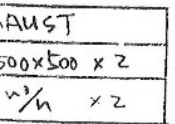 AUST
500x500 x 2
m³/h x 2